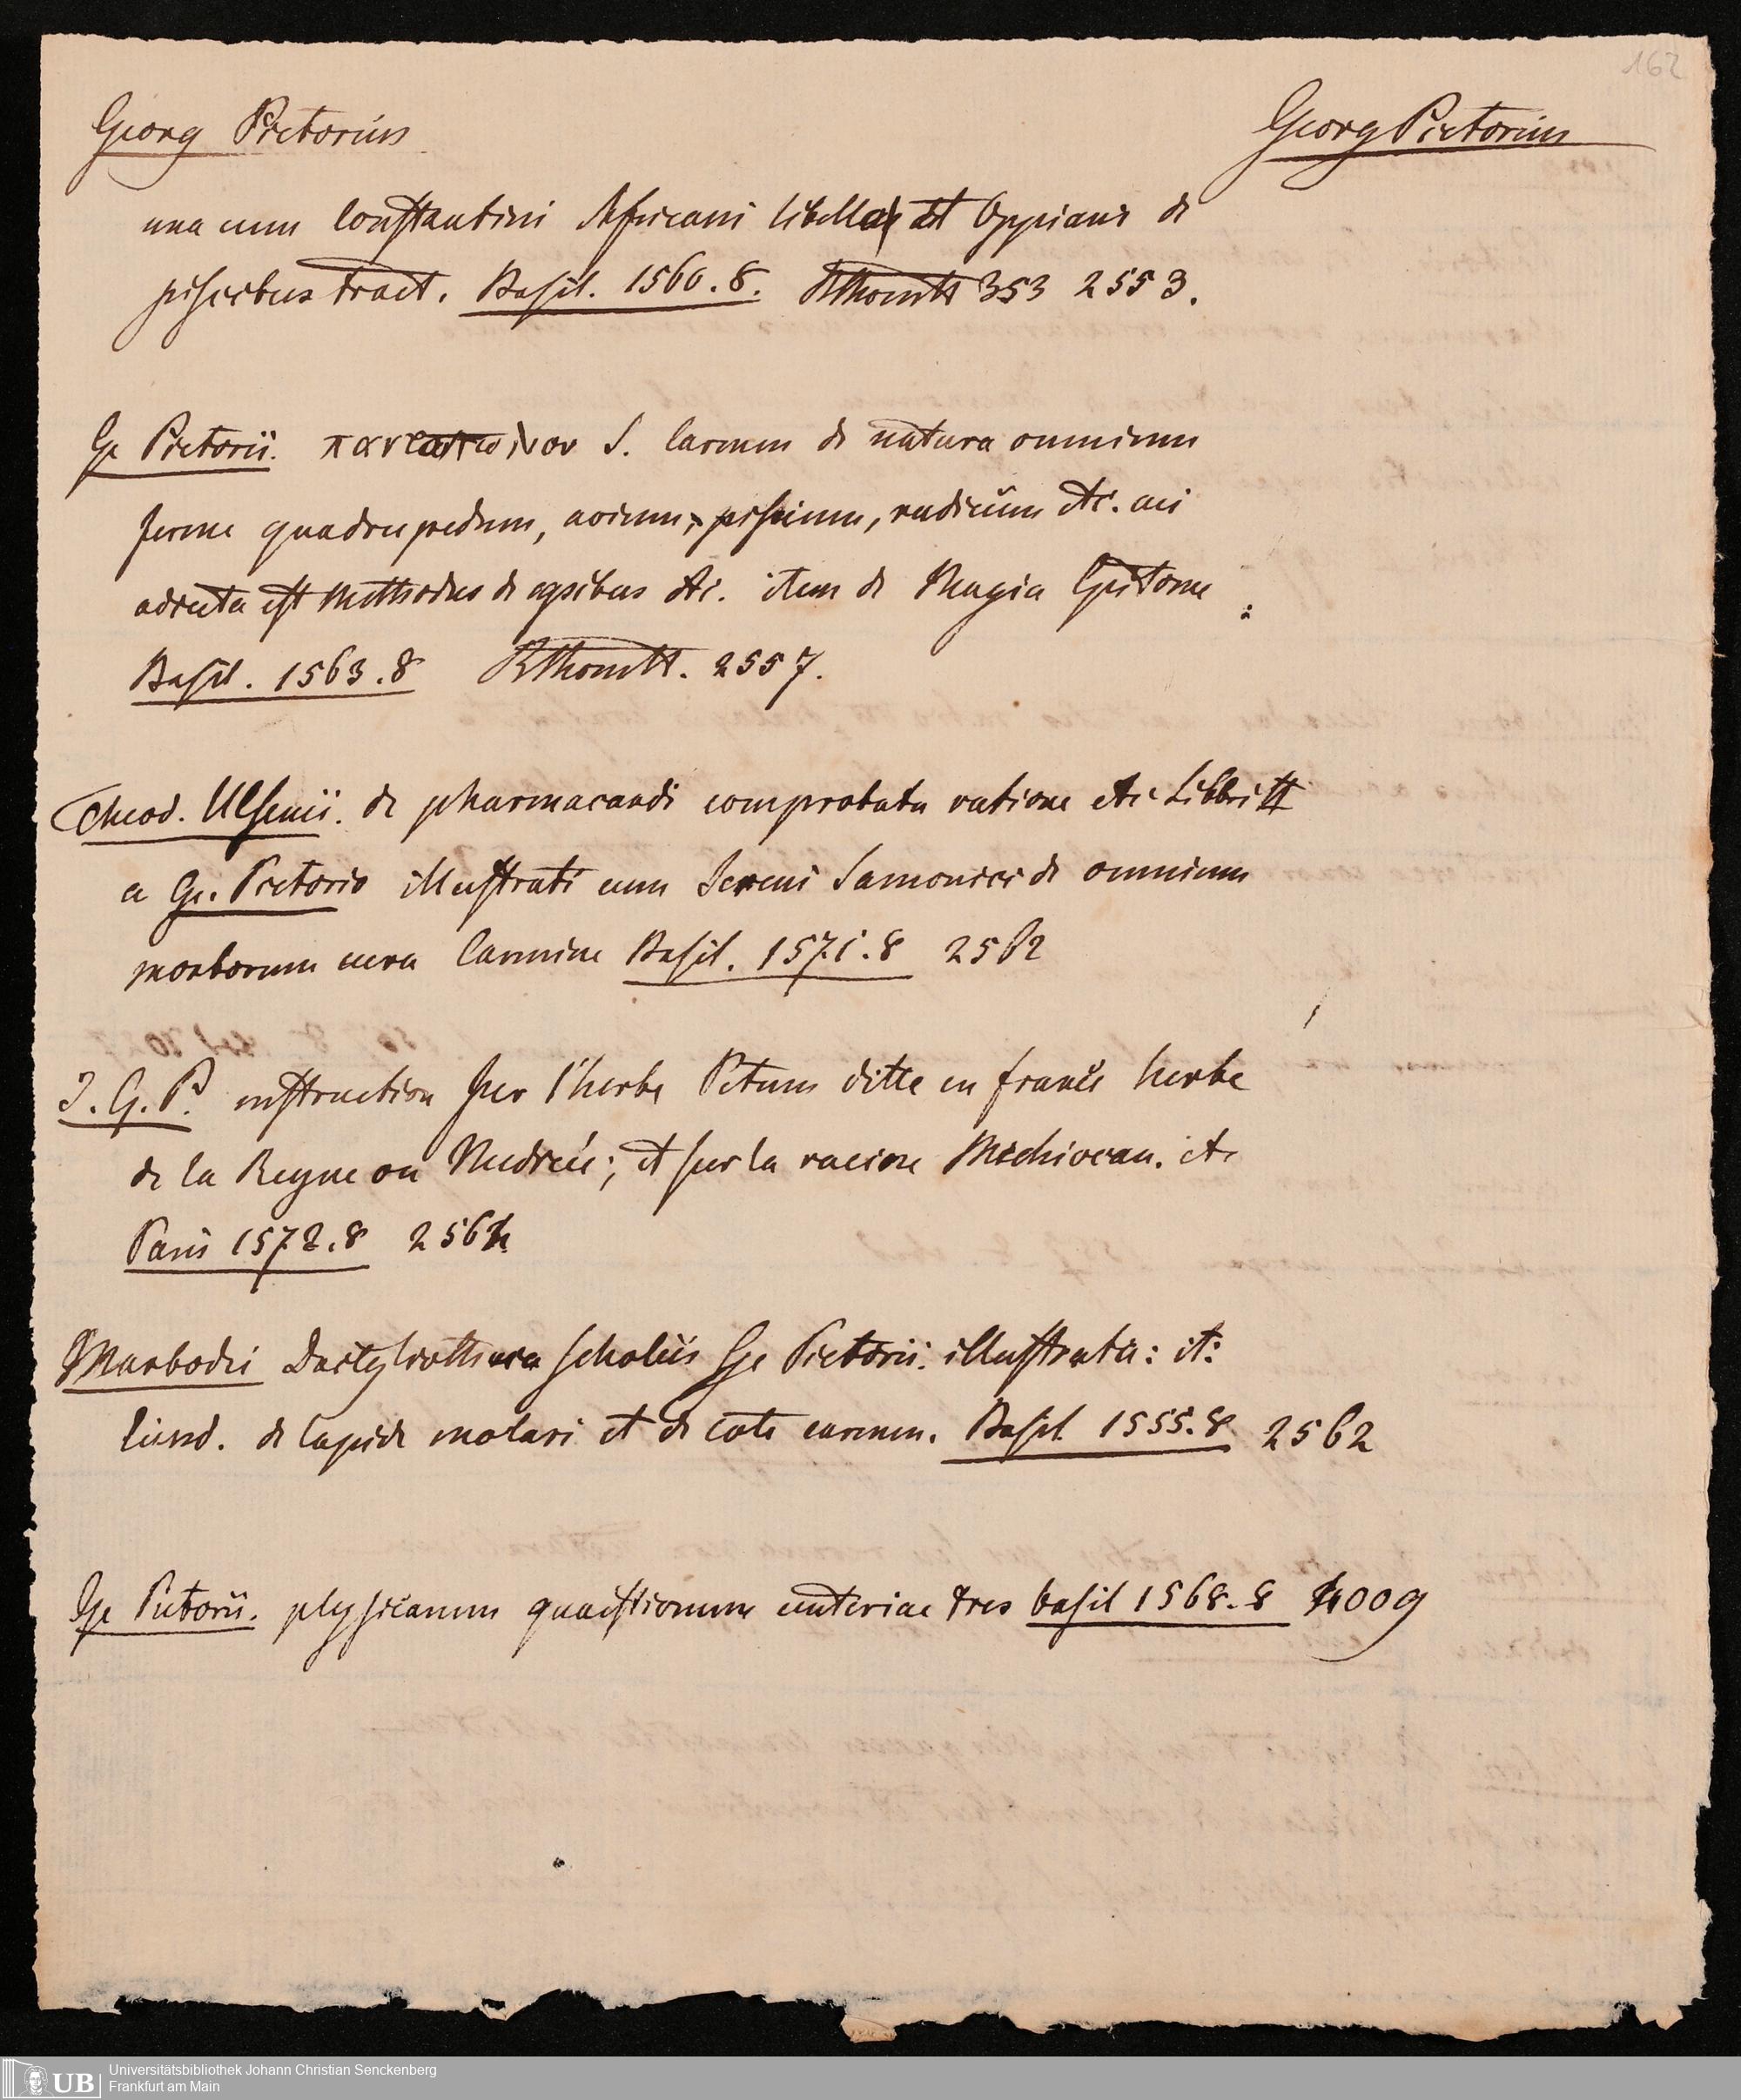 162
Georg Pictorius Georg Pictorius
una cum Constantini Africani libello et Oppiani de
piscibus tract. Basil. 1560. 8. 353 2553.
Ge Pictorii. S. Carmen de natura omnium
ferme quadrupedum, avium, piscium, radicum etc. cui
adiecta est Methodus de apibus etc. item de Magia Epitome
Basil. 1563. 8 2557.
Theod. Ulsenii. de pharmacandi comprobata ratione etc Libri II
a Ge. Pictorio illustrati cum Sereni Samonici de omnium
morborum cura Carmine Basil. 1571. 8 2562
I. G. P. instruction sur l'herbe Petum ditte en france herbe
de la Reyne ou Medicée; et sur la racine Mechiocan. etc
Paris 1572. 8 2562
Marbodei Dactyliotheca scholiis Ge Pictorii. illustrata: it:
eiusd. de lapide molari et de cote carmen. Basil 1555. 8 2562
Ge Pictorii. physicarum quaestionum centuriae tres basil 1568. 8 4009
UB
Universitätsbibliothek Johann Christian Senckenberg
Frankfurt am Main